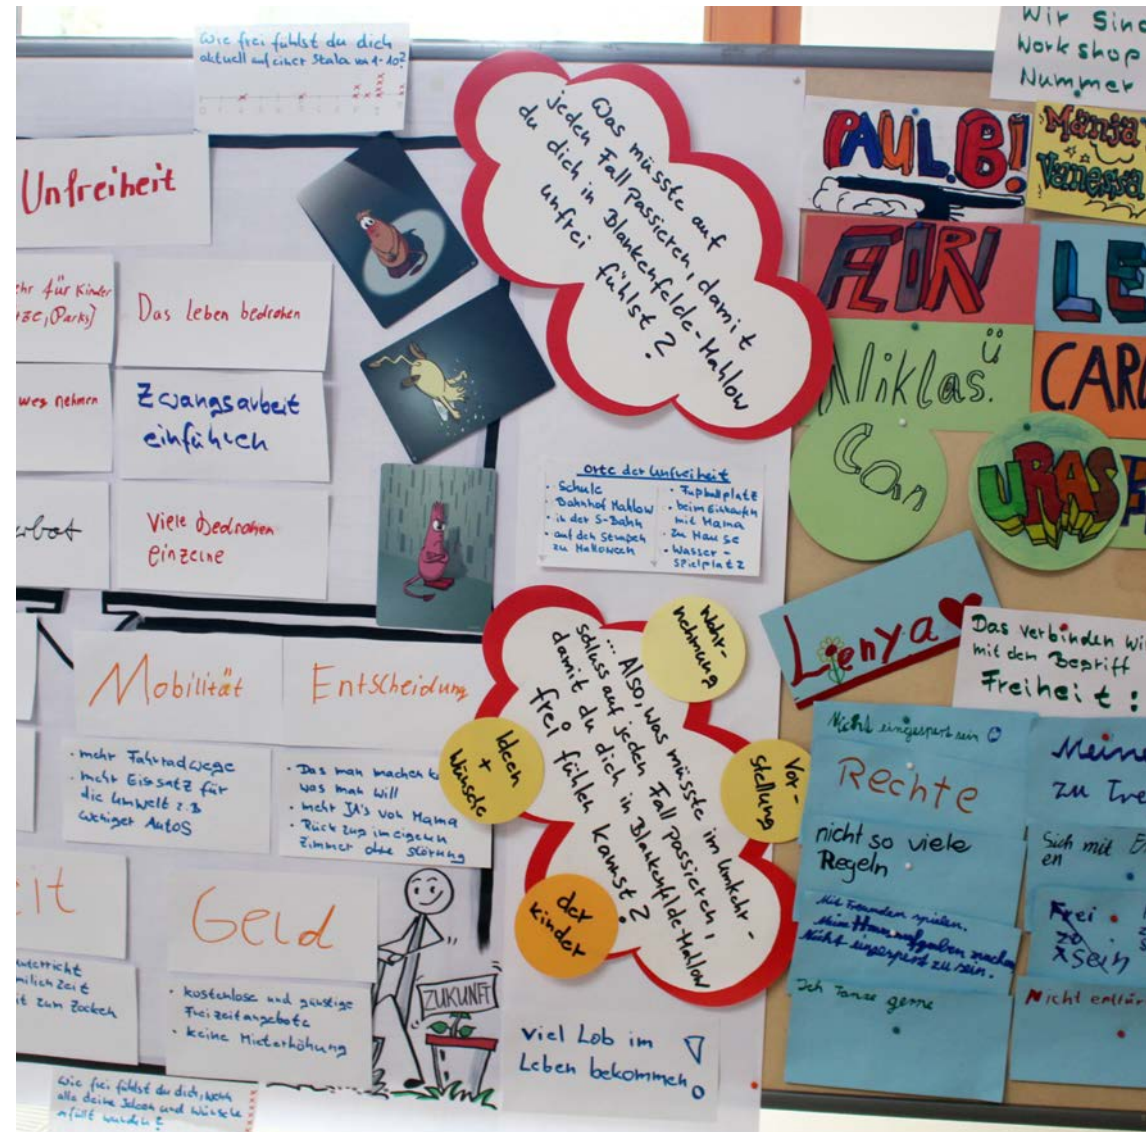 Wie frei fühlst du dich
aktuell auf einer Skala von 1-10?
Unfreiheit
für Kinder
Parks)
Das Leben bedrohen
weg nehmen
Zwangsarbeit
einführen
Viele Bedrohen
einzelne
Was müsste auf
jeden Fall passieren, damit
du dich in Blankenfelde-Mahlow
unfrei fühlst?
Orte der Unfreiheit
· Schule
· Bahnhof Mahlow
· in der S-Bahn
· auf den Straßen
zu Halloween
· Fußballplatz
· beim Einkaufen
mit Mama
· zu Hause
· Wasser-
spielplatz
Mobilität
· mehr Fahrradwege
· mehr Einsatz für
die Umwelt z.B
weniger Autos
Entscheidung
· Das man machen k
was man will
· mehr JA's von Mama
· Rückzug im eigenen
Zimmer ohne Störung
Wahr-
nehmung
Ideen
+
Wünsche
Vor-
stellung
der
Kinder
... Also, was müsste im Umkehr-
schluss auf jeden Fall passieren,
damit du dich in Blankenfelde-Mahlow
frei fühlen kannst?
eit
unterricht
milienzeit
it zum Zocken
Geld
· kostenlose und günstige
Freizeitangebote
· keine Mieterhöhung
ZUKUNFT
viel Lob im
Leben bekommen
!
Wie frei fühlst du dich, wenn
alle deine Ideen und Wünsche
erfüllt wurden?
Wir Sind
Workshop
Nummer
PAUL.B!
Manja
Vanessa
FLORI
LE
Niklas.
ü
CAR
Can
URAS
Lenya
Das verbinden wi
mit dem Begriff
Freiheit:
Nicht eingesperrt sein
Rechte
nicht so viele
Regeln
Mit Freunden spielen.
Meine Hausaufgaben machen
Nicht eingesperrt zu sein.
Ich Tanze gerne
Meine
zu
Sich mit
en
Frei
zu
sein
Nicht